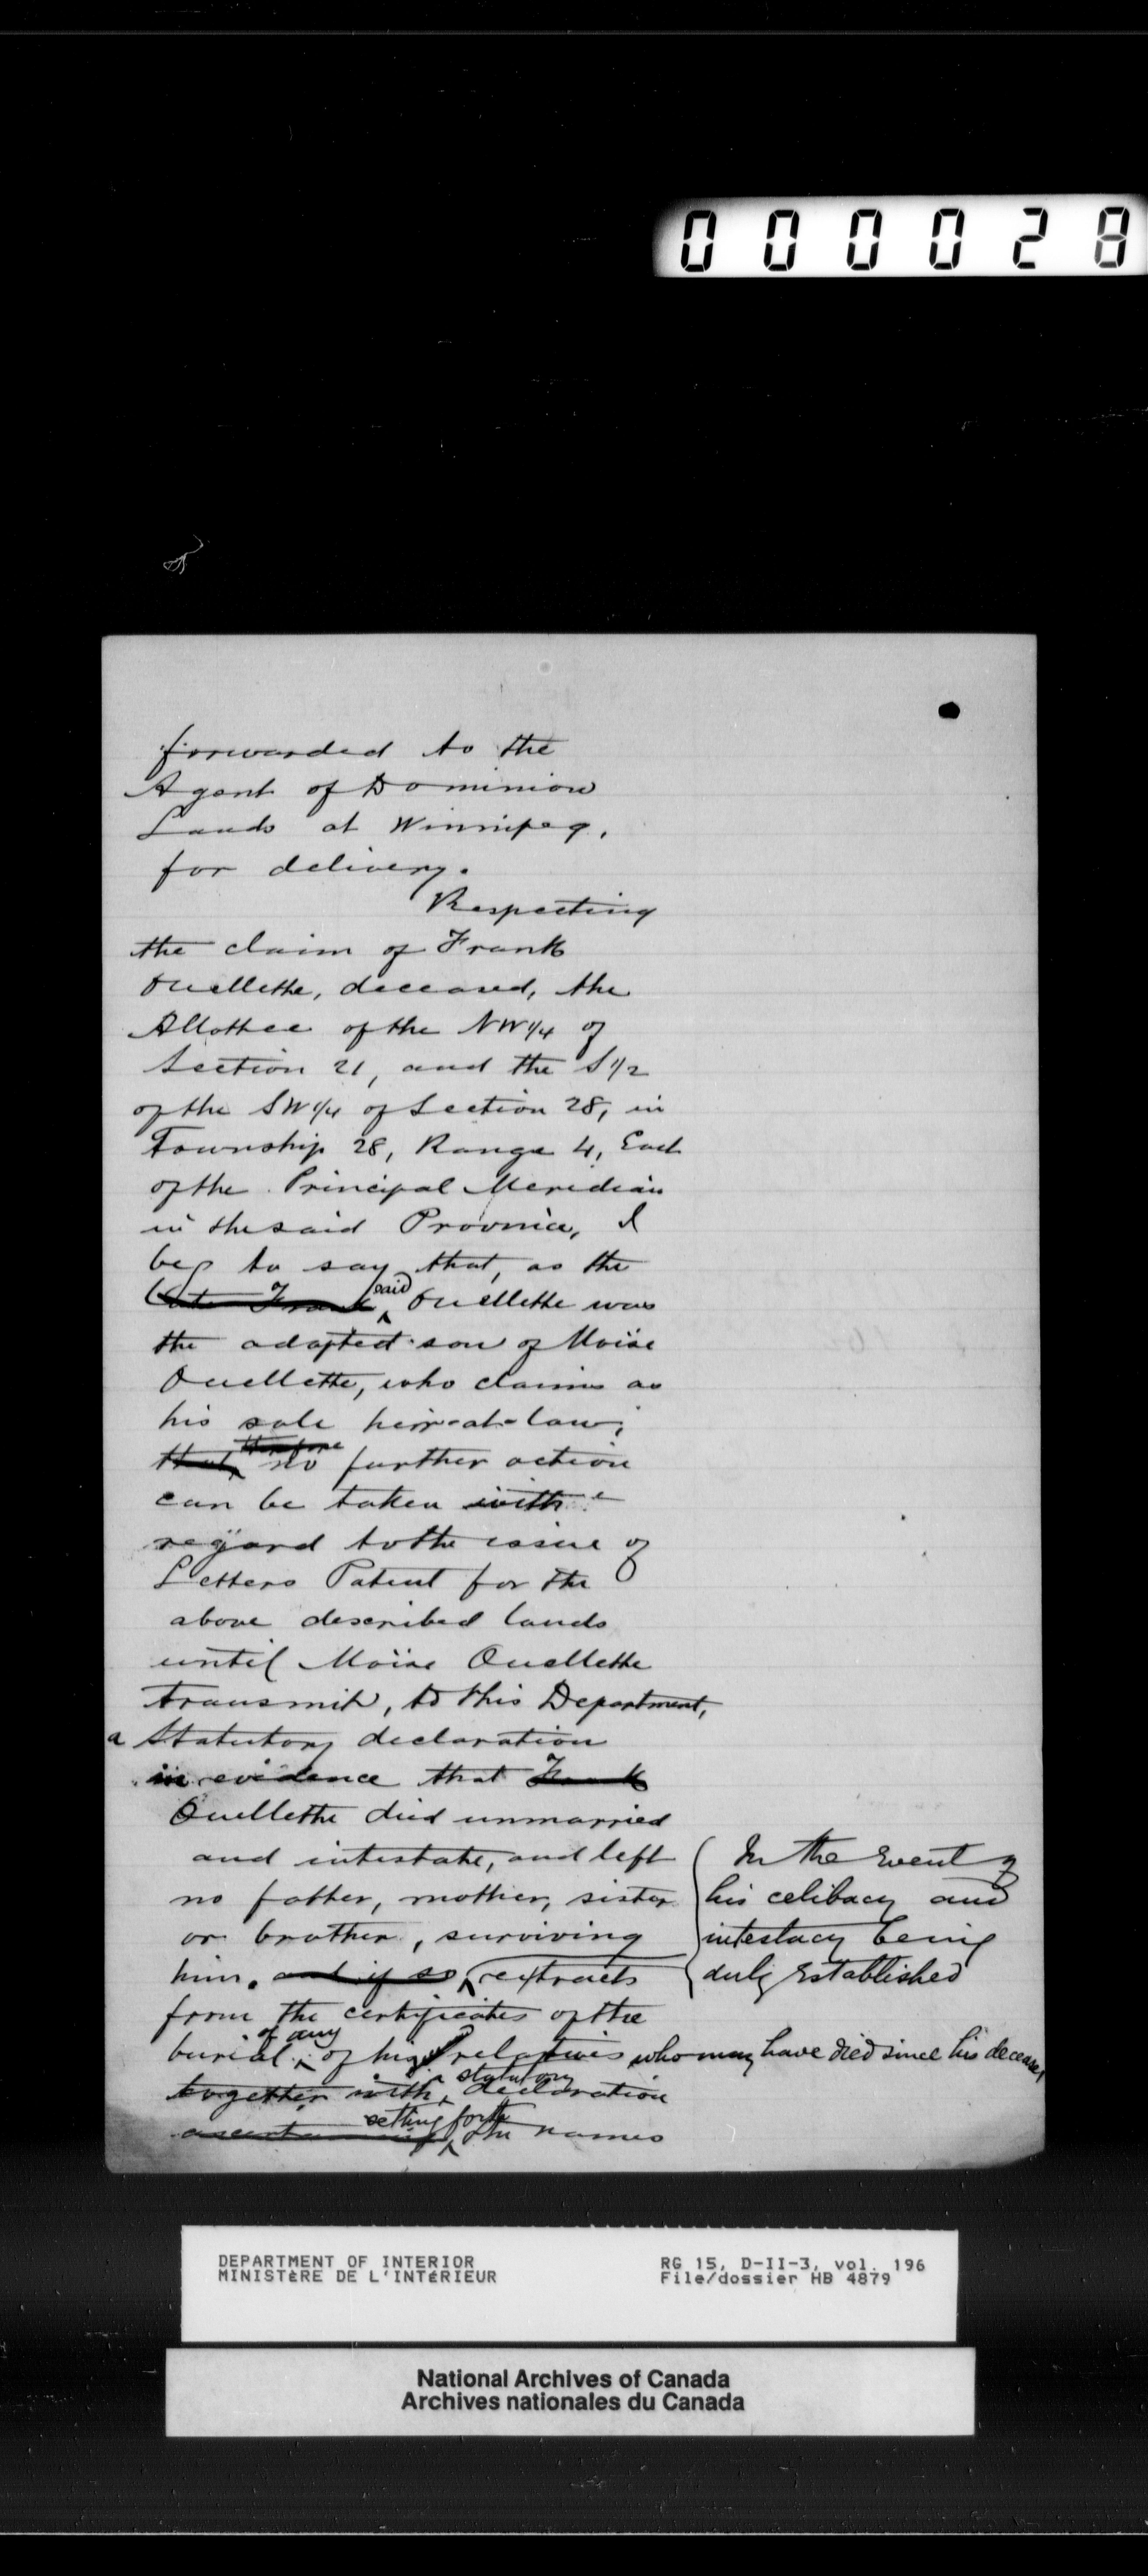 000028
forwarded to the
Agent of Dominion
Lands at Winnipeg,
for delivery.
Respecting
the claim of Frank
Ouellette, deceased, the
Allottee of the NW 1/4 of
Section 21, and the S 1/2
of the SW 1/4 of Section 28, in
Township 28, Range 4, East
of the Principal Meridian
in the said Province, I
beg to say that, as the
late Frank said Ouellette was
the adopted son of Moïse
Ouellette, who claims as
his sole heir-at-law;
that, therefore no further action
can be taken with
regard to the issue of
Letters Patent for the
above described lands
until Moïse Ouellette
transmit, to this Department,
a Statutory declaration
in evidence that Frank
Ouellette died unmarried
and intestate, and left
no father, mother, sister
or brother, surviving
him. and if so, extracts
In the event of
his celibacy and
intestacy being
duly established
from the certificates of the
burial of any of his relatives who may have died since his decease,
together with a statutory declaration
ascertaining setting forth the names
DEPARTMENT OF INTERIOR
MINISTÈRE DE L'INTÉRIEUR
RG 15, D-II-3, vol. 196
File/dossier HB 4879
National Archives of Canada
Archives nationales du Canada